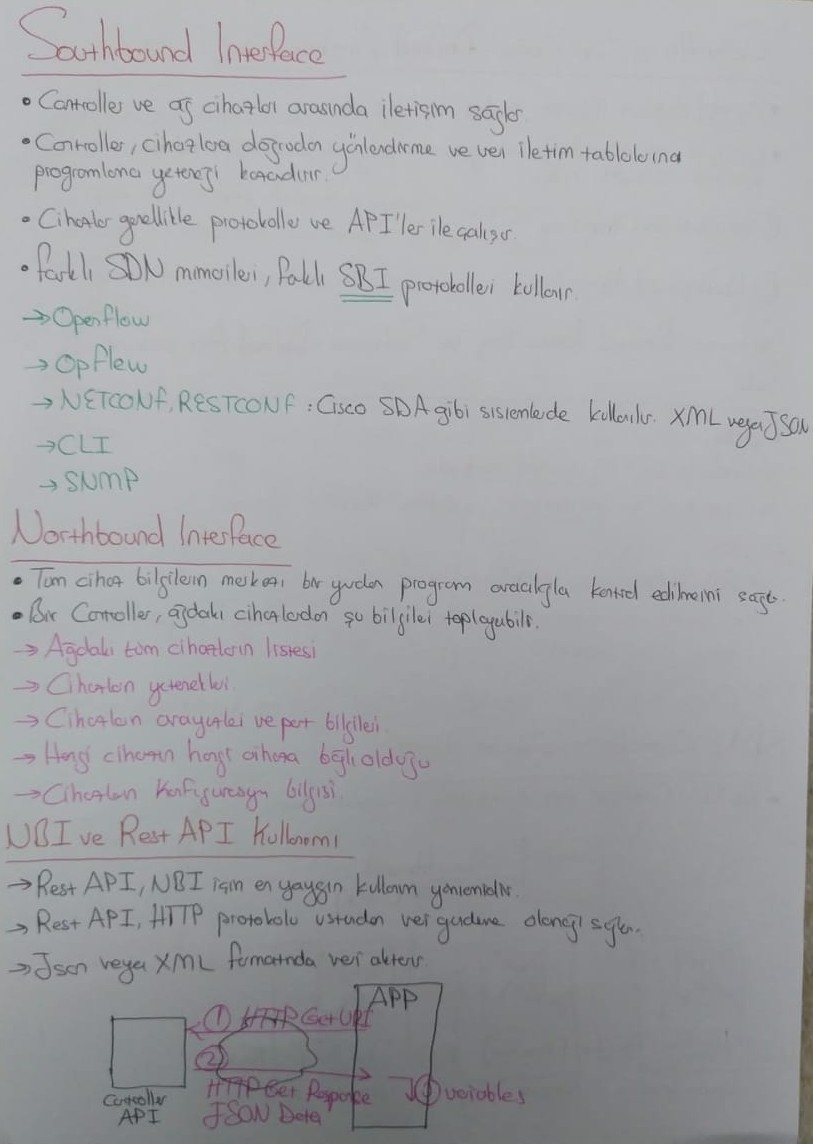 Southbound Interface
• Controller ve ağ cihazları arasında iletişim sağlar.
• Controller, cihazlara doğrudan yönlendirme ve veri iletim tablolarına
programlama yeteneği kazandırır.
• Cihazlar genellikle protokoller ve API'ler ile çalışır.
• farklı SDN mimarileri, farklı SBI protokolleri kullanır.
→ Openflow
→ Opflew
→ NETCONF, RESTCONF : Cisco SDA gibi sistemlerde kullanılır. XML veya JSON
→ CLI
→ SNMP
Northbound Interface
• Tüm cihaz bilgilerin merkezi bir yerden program aracılığla kontrol edilmesini sağlar.
• Bir Controller, ağdaki cihazlardan şu bilgileri toplayabilir.
→ Ağdaki tüm cihazların listesi
→ Cihazların yetenekleri
→ Cihazların arayüzleri ve port bilgileri
→ Hangi cihazın hangi cihaza bağlı olduğu
→ Cihazların Konfigürasyon bilgisi.
NBI ve Rest API Kullanımı
→ Rest API, NBI için en yaygın kullanım yöntemidir.
→ Rest API, HTTP protokolü üstünden veri gönderme olanağı sağlar.
→ Json veya XML formatında veri aktarır.
APP
① HTTP Get URI
②
HTTP Get Response
JSON Data
variables
Controller
API